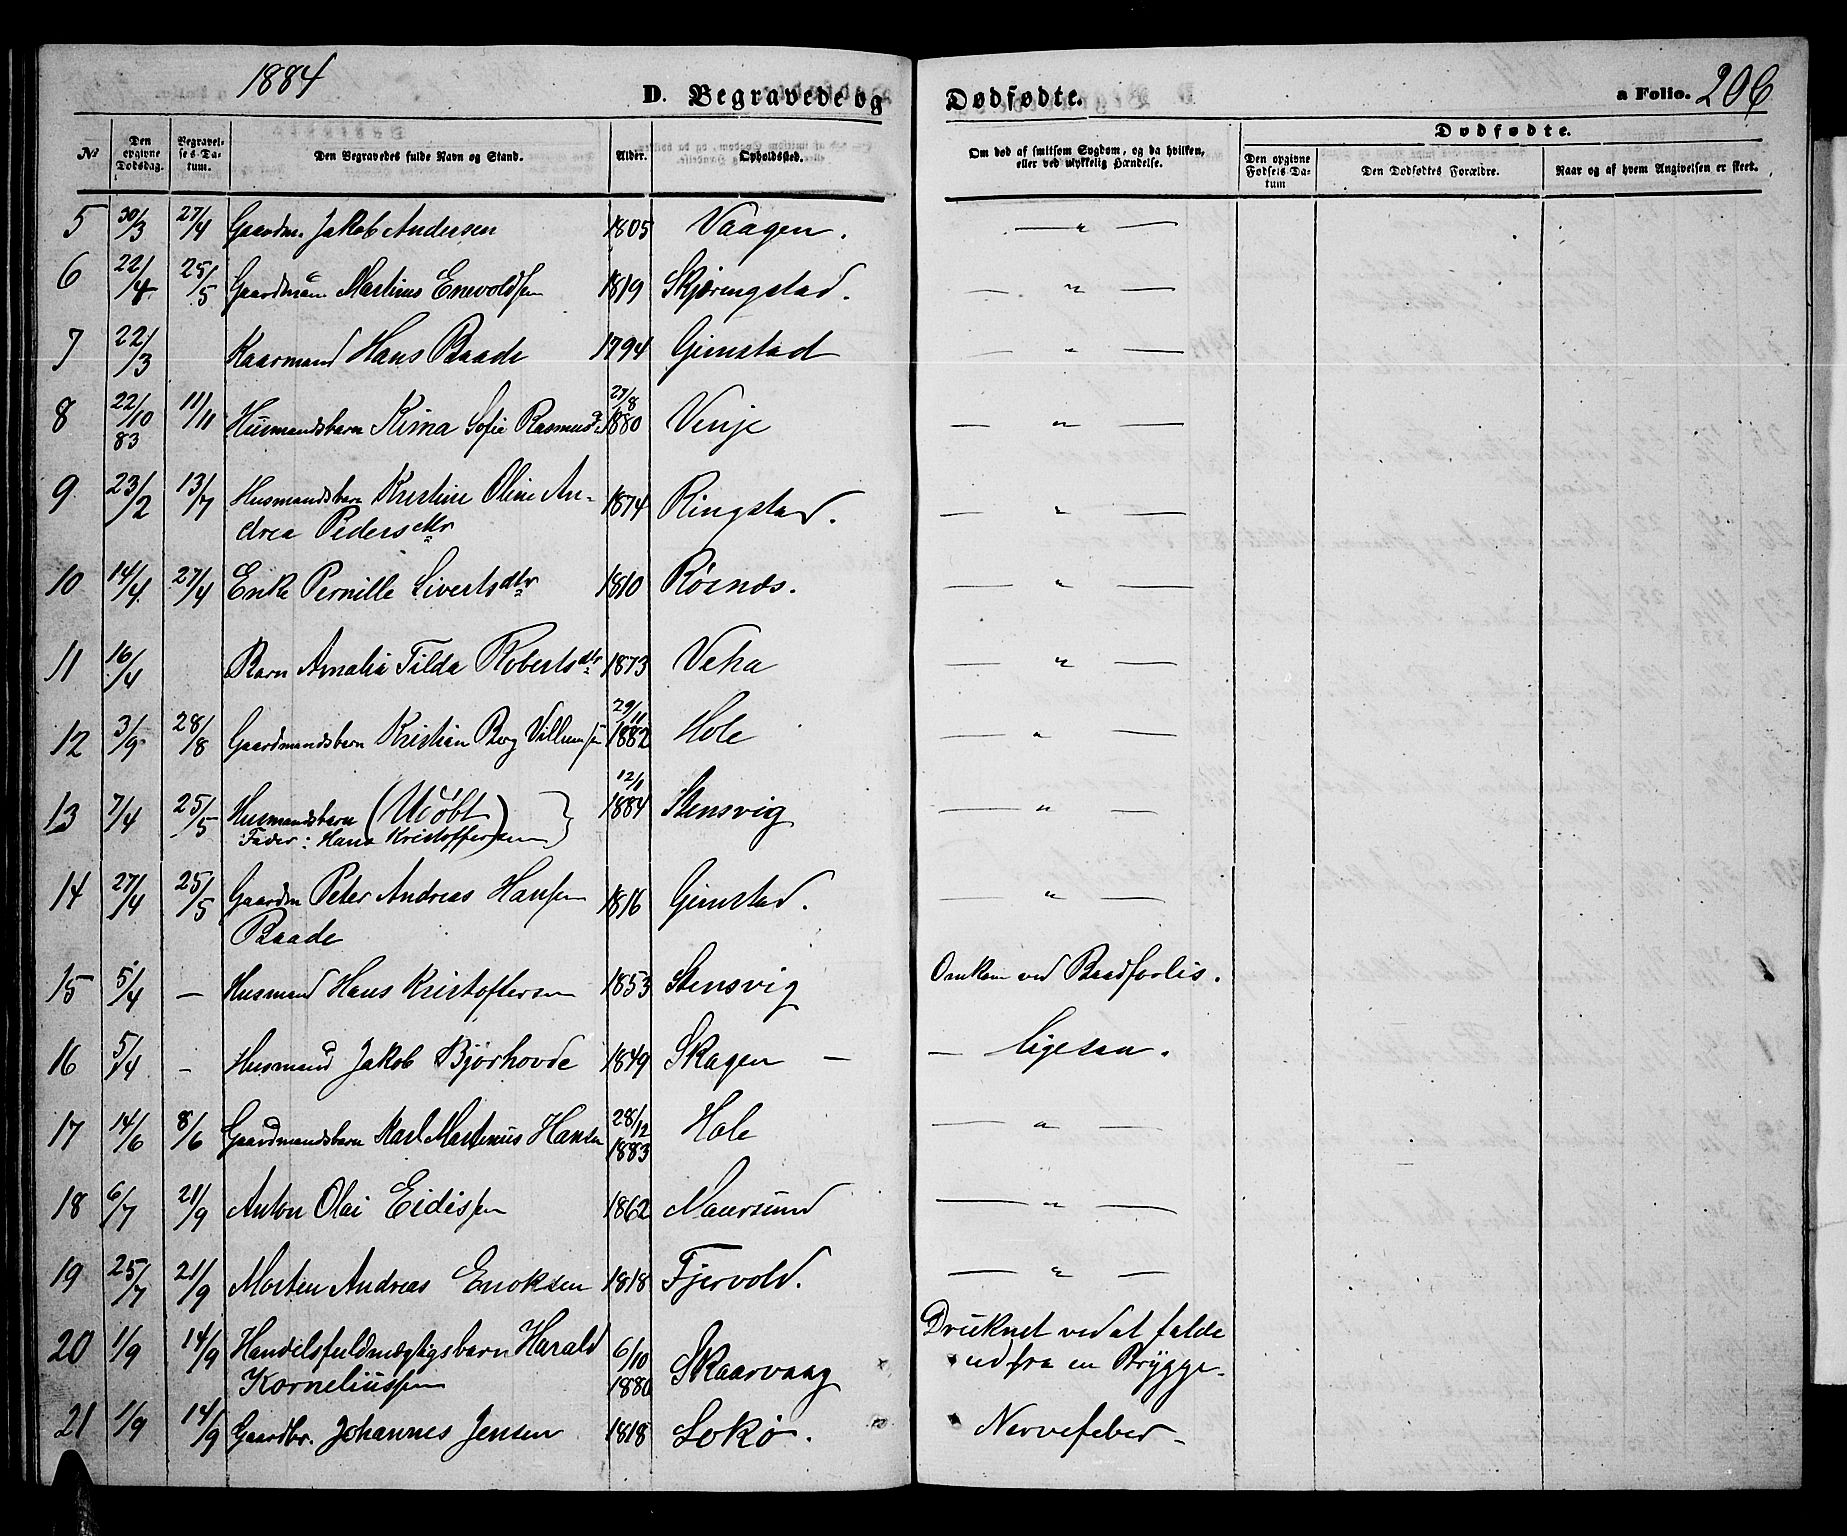 1884
D. Begravede og Dødfødte. a Folio. 206
№ Den opgivne Dødsdag. Begravelses-Datum. Den Begravedes fulde Navn og Stand. Alder. Opholdssted. Om død af smitsom Sygdom, og da hvilken, eller ved ulykkelig Hændelse. Dødfødte. Den opgivne Fødsels Datum Den Dødfødtes Forældre. Naar og af hvem Angivelsen er skeet.
5 30/3 27/4 Gaardm. Jakob Andersen 1805 Vaagen. — " —
6 22/4 25/5 Gaardmand Martinus Enevoldsen 1819 Skjæringstad. — " —
7 22/3 Kaarmand Hans Baade 1794 Gimstad — " —
8 22/10 83 11/11 Husmandsbarn Kima Sofie Rasmusd. 27/8 1880 Vinje — " —
9 23/2 13/7 Husmandsbarn Kristine Oline An-
drea Pedersdtr 1874 Ringstad. — " —
10 14/4 27/4 Enke Pernille Sivertsdtr 1810 Røsnæs. — " —
11 16/4 Barn Amalia Tilda Robertsdtr 1873 Veha — " —
12 3/9 28/8 Gaardmandsbarn Kristian Berg Villumsen 29/11 1882 Hole — " —
13 7/4 25/5 Husmandsbarn (Udøbt) 12/1 1884 Stensvig — " —
Fader: Hans Kristoffersen
14 27/4 25/5 Gaardm Peter Andreas Hansen
Baade 1816 Gimstad. — " —
15 5/4 — Husmand Hans Kristoffersen 1853 Stensvig Omkom ved Baadforlis.
16 5/4 - Husmand Jakob Bjørhovde 1849 Skagen — — ligesaa.
17 14/6 8/6 Gaardmandsbarn Karl Martinus Hansen 28/12 1883 Hole — " —
18 6/7 21/9 Anton Olai Eidissen 1862 Maursund — " —
19 25/7 21/9 Morten Andreas Enoksen 1818 Fjervold. — " —
20 1/9 14/9 Handelsfuldmægtigsbarn Harald
Korneliussen 6/10 1880 Skaarvaag Druknet ved at falde
ud fra en Brygge.
21 1/9 14/9 Gaardbr. Johannes Jensen 1818 Sokø. Nervefeber